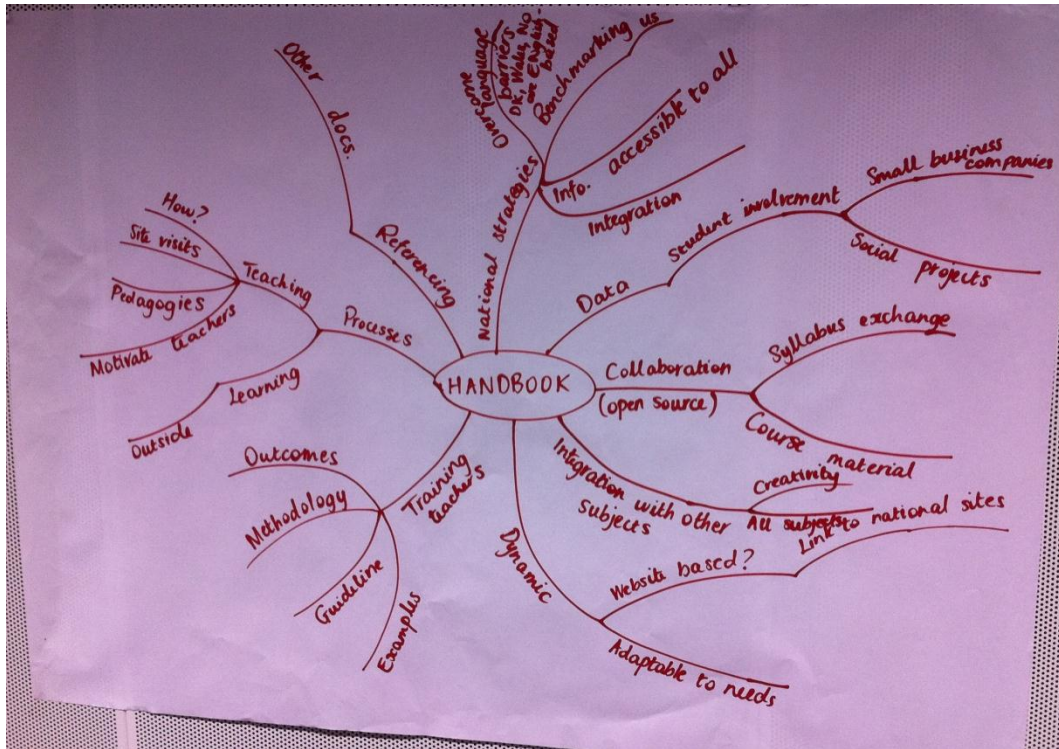 HANDBOOK
National strategies
Overcome
language
barriers
DK, Wales, No
are English
based
Benchmarking us
Info. accessible to all
Integration
Data
Student involvement
Small business
companies
Social projects
Collaboration
(open source)
Syllabus exchange
Course material
Integration with other
subjects
Creativity
All subjects
Dynamic
Website based?
Link to national sites
Adaptable to needs
Training
teachers
Outcomes
Methodology
Guideline
Examples
Processes
Teaching
How?
Site visits
Pedagogies
Motivate teachers
Learning
Outside
Referencing
Other docs.